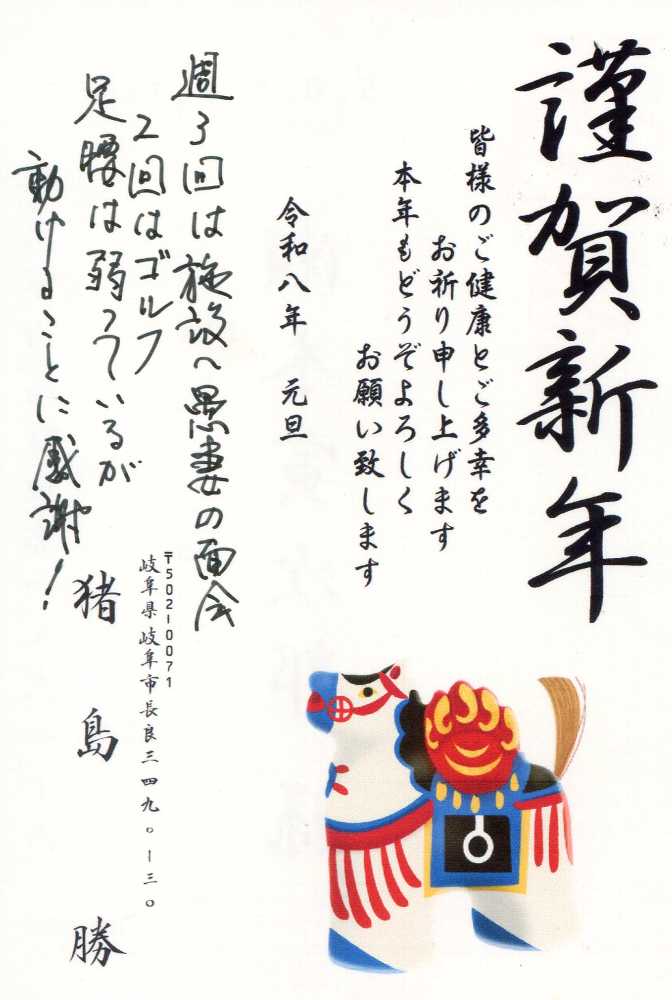 謹賀新年
皆様のご健康とご多幸を
お祈り申し上げます
本年もどうぞよろしく
お願い致します
令和八年 元旦
週3回は施設へ愚妻の面会
2回はゴルフ
足腰は弱っているが
動けることに感謝!
〒502-0071
岐阜県岐阜市長良三四九〇ー三〇
猪島 勝